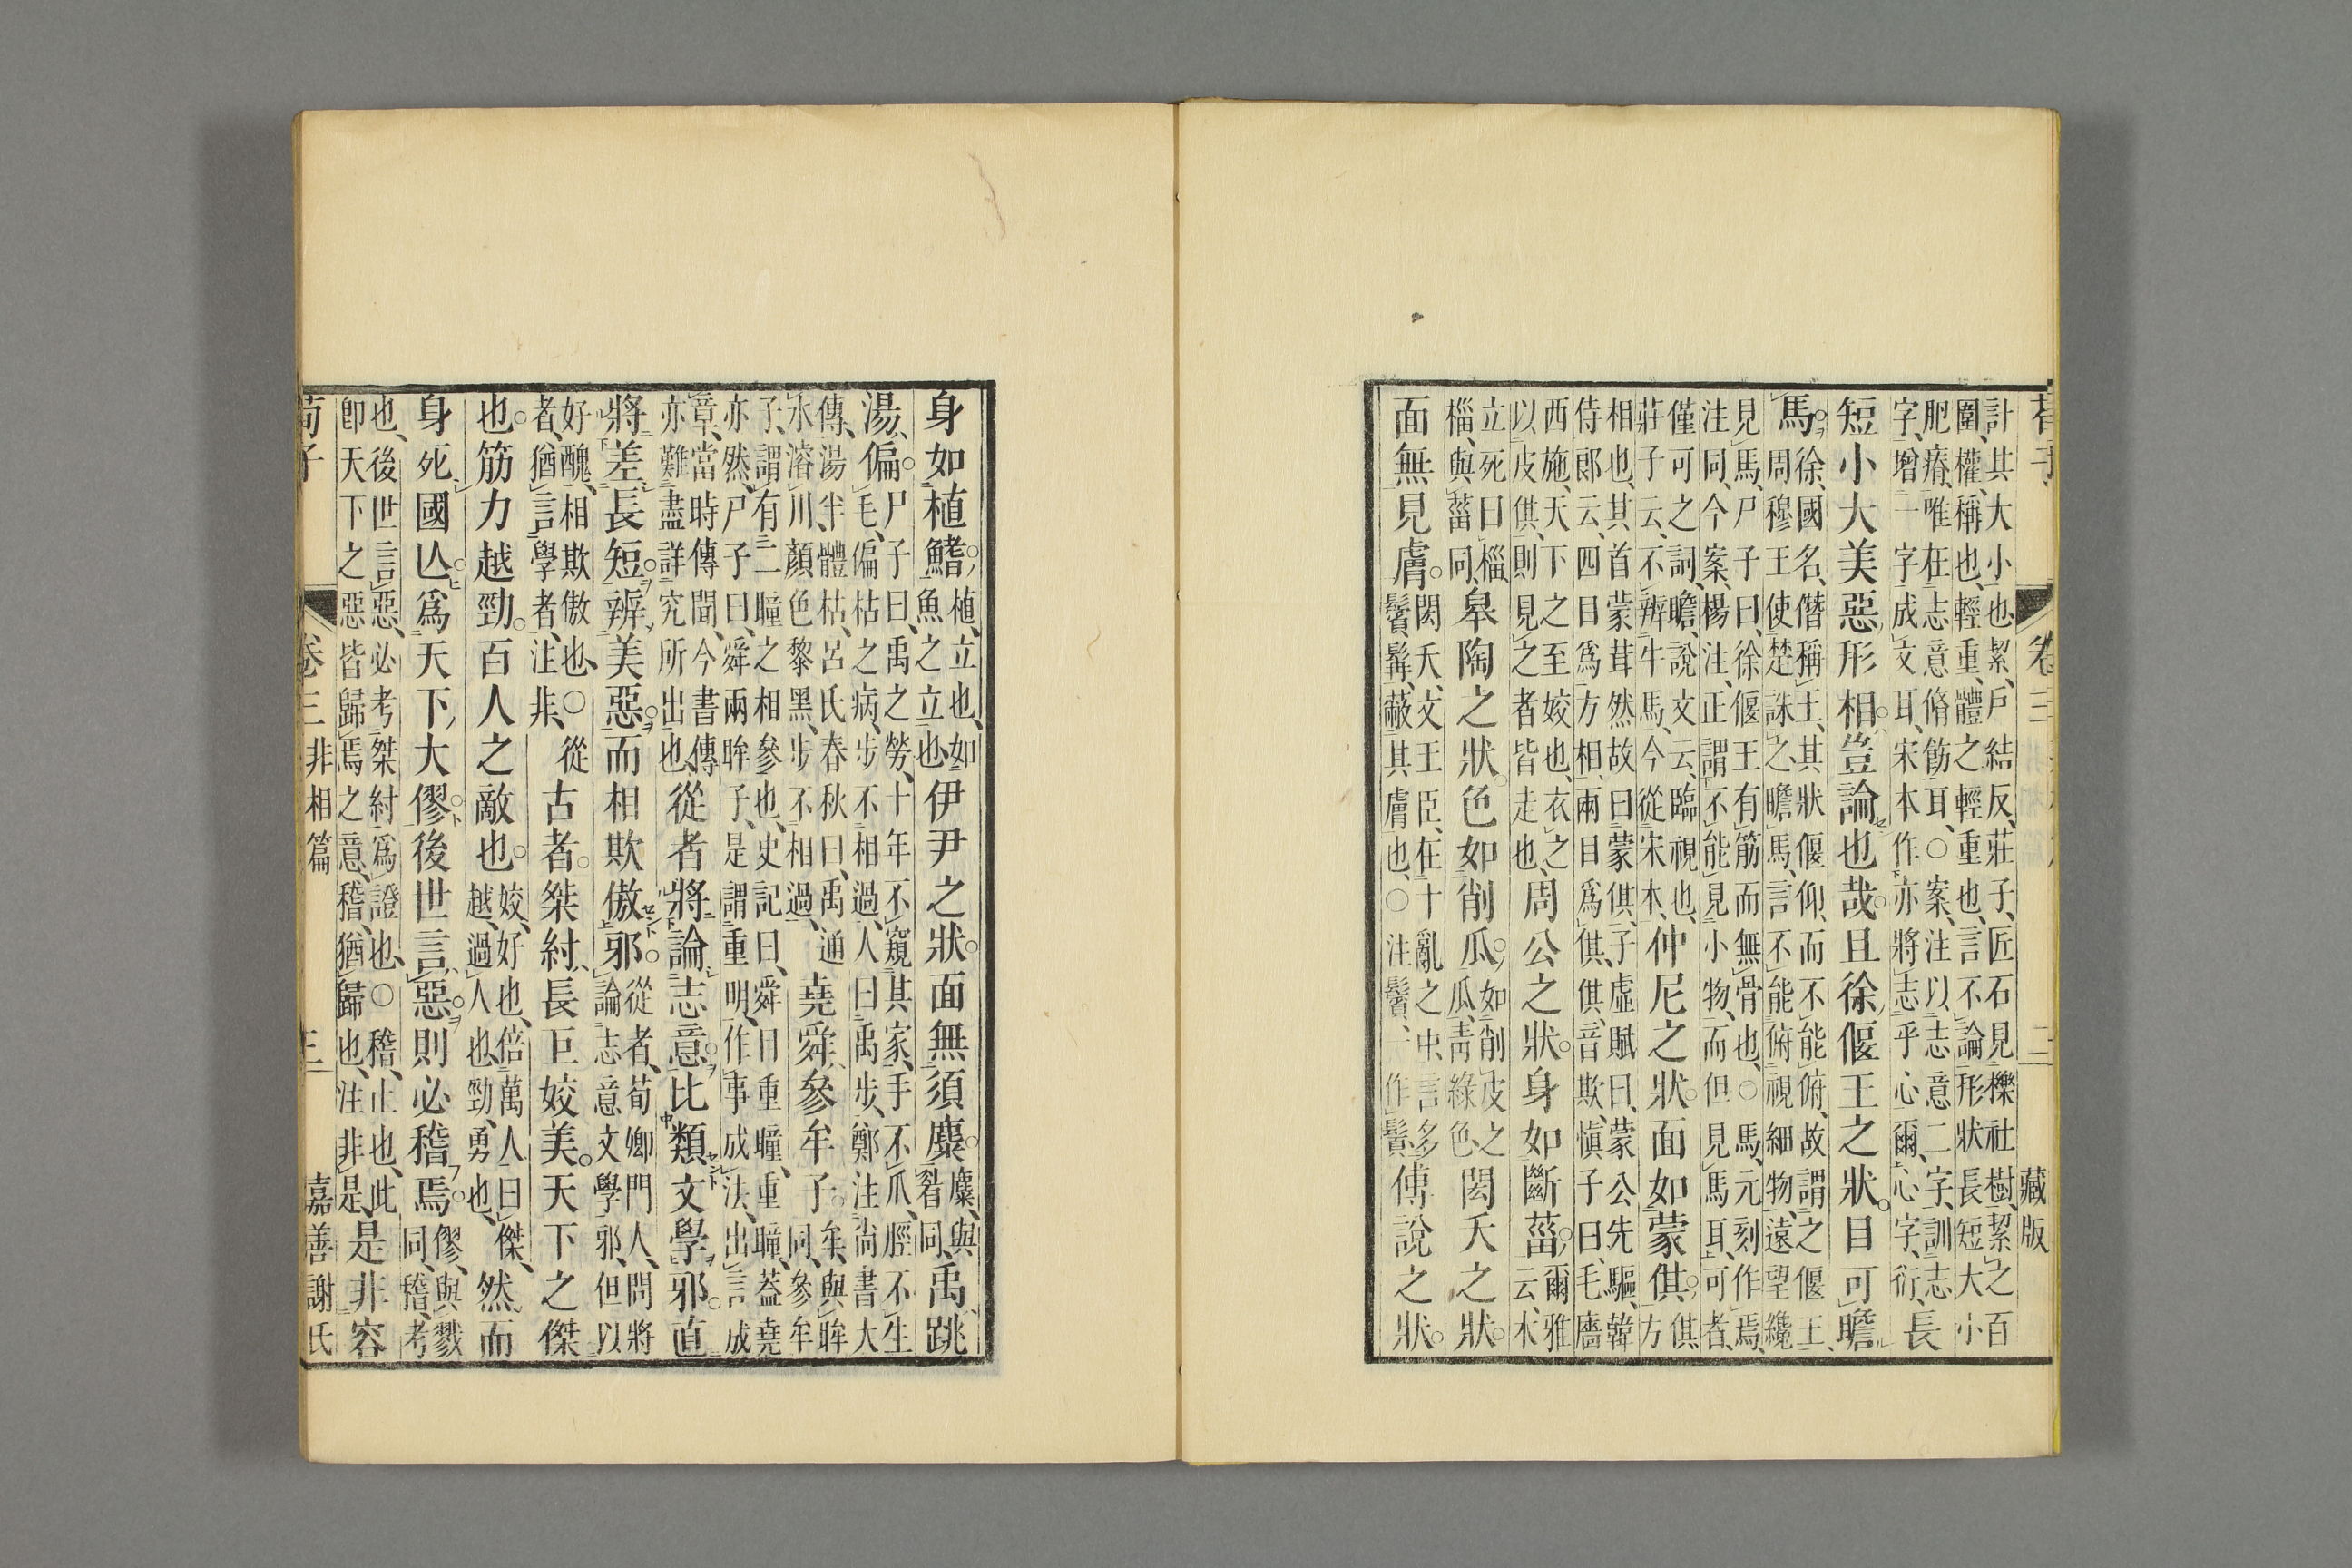 荀子 卷三 二 藏版
計其大小也絜、戶結反、莊子、匠石見櫟社樹、絜之百
圍、權、稱也、輕重、體之輕重也、言不論形狀長短大小
肥瘠、唯在志意脩飭耳、○案、注以志意二字、訓志
字、增一字成文耳、宋本作亦將志乎心爾、心字、衍、長
短小大美惡形相。豈論也哉。且徐偃王之狀。目可瞻
馬。徐、國名、僭稱王、其狀偃仰、而不能俯、故謂之偃王、
周穆王使楚誅之瞻馬、言不能俯視細物、遠望纔
見馬、尸子曰、徐偃王有筋而無骨也、○馬、元刻作焉、
注同、今案、楊注、正謂不能見小物、而但見馬耳、可者、
僅可之詞、瞻、說文云、臨視也、
莊子云、不辨牛馬、今從宋本、仲尼之狀。面如蒙倛。倛
方
相也、其首蒙茸然故曰蒙倛、子虛賦曰、蒙公先驅、韓
侍郞云、四目爲方相、兩目爲倛、倛、音欺、慎子曰、毛廧
西施、天下之至姣也、衣之
以皮倛、則見之者皆走也、周公之狀。身如斷菑。爾雅
云、木
立死曰椔、
椔、與菑同、皋陶之狀。色如削瓜。如削皮之
瓜、靑綠色、閎夭之狀。
面無見膚。閎夭、文王臣、在十亂之中、言多
鬢、髯、蔽其膚也、○注鬢、一作鬚、傅說之狀。
身如植鰭。植、立也、如
魚之立也伊尹之狀。面無須麋。麋、與
眉同、禹跳
湯、偏。尸子曰、禹之勞、十年不窺其家、手不爪、脛不生
毛、偏枯之病、步不相過、人曰禹步、鄭注尚書大
傳、湯半體枯、呂氏春秋曰、禹通
水濬川、顏色黎黑、步不相過、堯舜、參牟子。牟、與眸
同、參牟
子、謂有二瞳之相參也、史記曰、舜目重瞳、重瞳、蓋堯
亦然、尸子曰、舜兩眸子、是謂重明、作事成法、出言成
章、當時傳聞、今書傳
亦難盡詳究所出也、從者將論志意。比類文學邪。直
將差長短。辨美惡。而相欺傲邪。從者、荀卿門人、問將
論志意文學邪、但以
好醜、相欺傲也、○從
者、猶言學者、注非、古者。桀紂、長巨姣美。天下之傑
也。筋力越勁。百人之敵也。姣、好也、倍萬人曰傑、
越、過人也、勁、勇也、然而
身死國亾。爲天下大僇。後世言惡。則必稽焉。僇、與戮
同、稽、考
也、後世言惡、必考桀紂爲證也、○稽、止也、此
卽天下之惡皆歸焉之意、稽、猶歸也、注非是、是非容
荀子 卷三 非相篇 三 嘉善謝氏